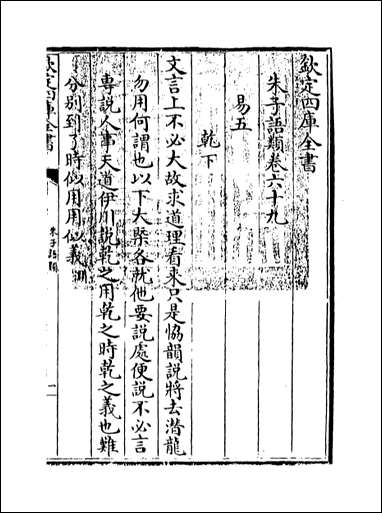 欽定四庫全書
朱子語類卷六十九
易五
乾下
文言上不必大故求道理看來只是恊韻說將去潜龍
勿用何謂也以下大槩各就他要說處便說不必言
専說人事天道伊川說乾之用乾之時乾之義也難
分别到了時似用用似義淵
欽定四庫全書
朱子語類
一